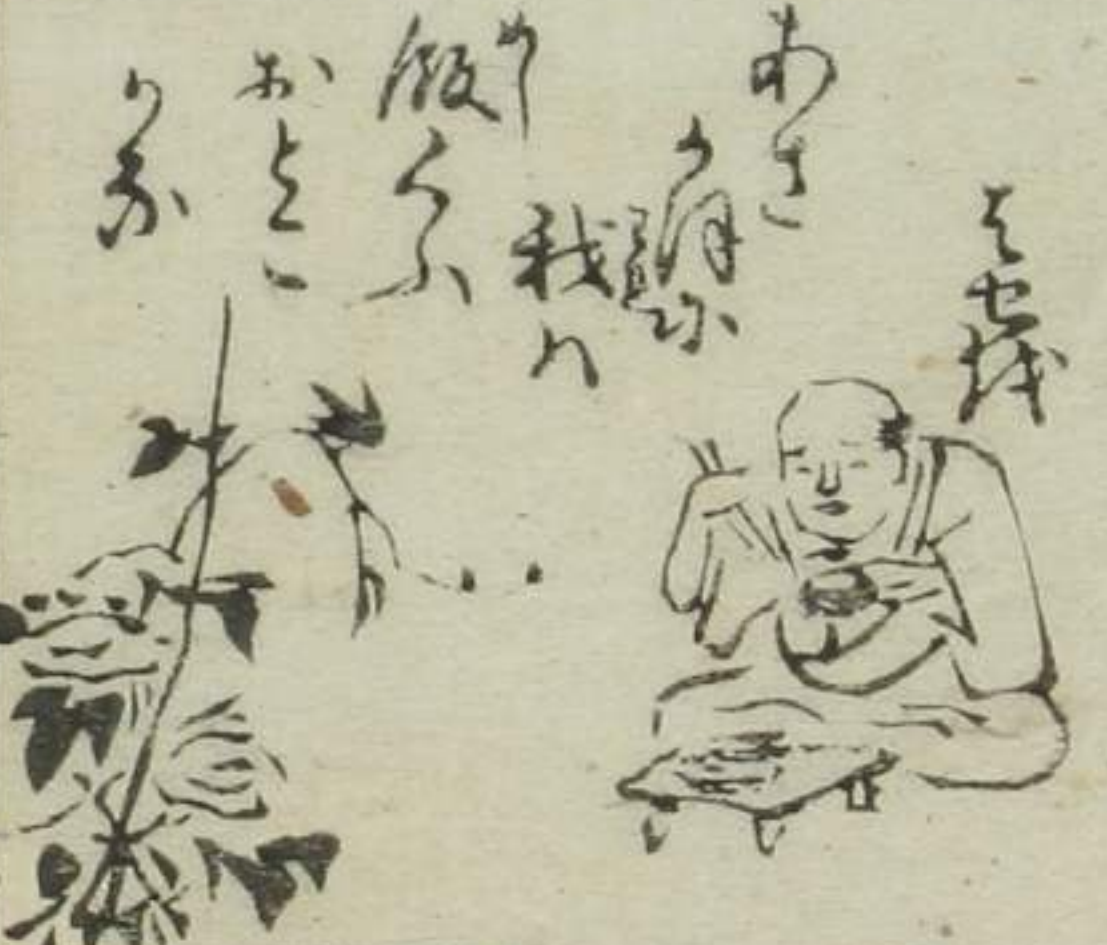 はせを
あさ
かほに
我ハ
めし
飯くふ
おとこ
かな